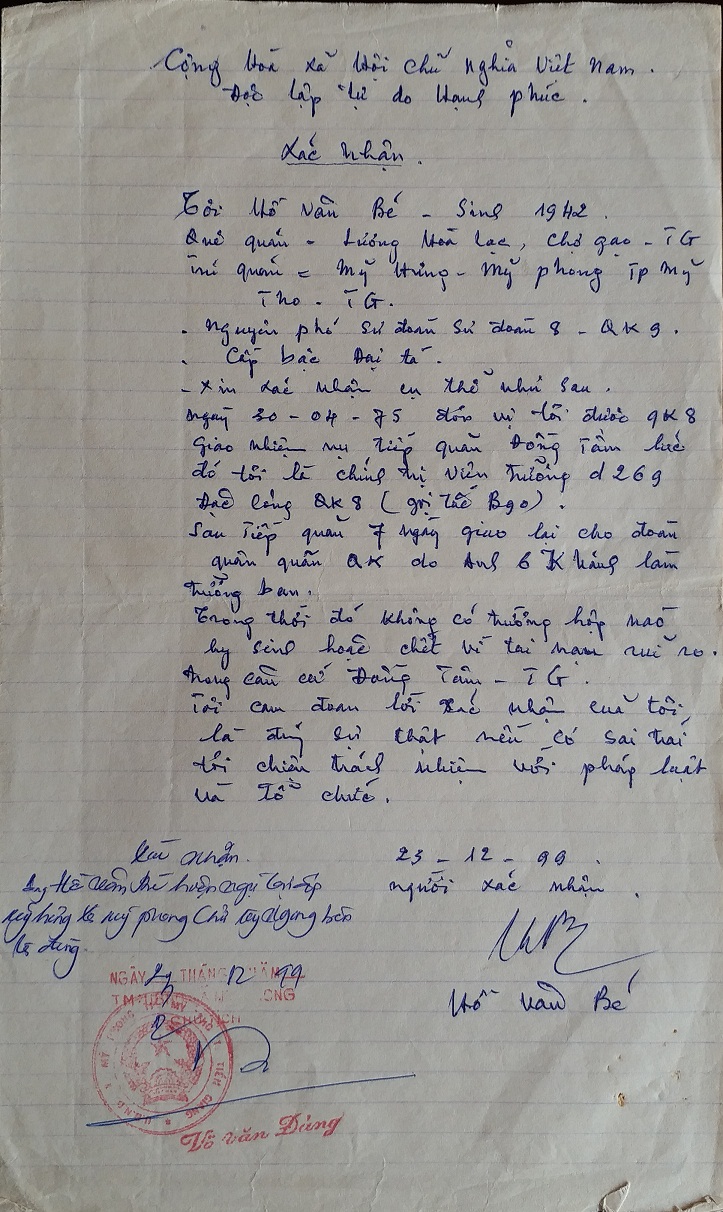 Cộng Hoà xã Hội chủ nghĩa Việt Nam.
Độc lập tự do Hạnh phúc.
Xác Nhận.
Tôi Hồ Văn Bé - Sinh 1942.
Quê quán - Lương Hoà Lạc, Chợ gạo - TG
Trú quán = Mỹ Hưng - Mỹ phong Tp Mỹ
Tho - TG.
. Nguyên phó Sư đoàn Sư đoàn 8 - QK9.
. Cấp bậc Đại tá.
- Xin xác nhận cụ thể như sau.
ngày 30-04-75 đơn vị tôi được QK8
Giao nhiệm vụ tiếp quản Đồng Tâm lúc
đó tôi là chính trị viên trưởng d269
Đặc công QK8 (gọi tắc B90).
Sau Tiếp quản 7 ngày giao lại cho đoàn
quân quản QK do Anh 6 Khánh làm
trưởng ban.
Trong thời đó không có trường hợp nào
hy sinh hoặc chết vì tai nạn rủi ro.
trong căn cứ Đồng Tâm - TG.
Tôi cam đoan lời xác nhận của tôi,
là đúng sự thật nếu có sai trái
tôi chiệu trách nhiệm với pháp luật
và tổ chức.
23-12-99.
người xác nhận.
Hồ Văn Bé
Xác nhận.
Ông Hồ Văn Bé hiện ngụ tại ấp
Mỹ hưng xã mỹ phong Chữ ký ngang bên
là đúng.
NGÀY 24 THÁNG 12 NĂM 99
CHỦ TỊCH
U.B.N.D X MỸ PHONG TP MỸ THO T TIỀN GIANG
Võ văn Dũng